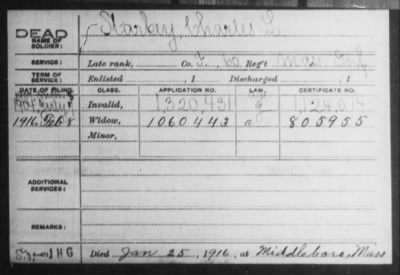 DEAD
NAME OF SOLDIER: Starkey, Charles L.
SERVICE: Late rank, Co. I, 60 Reg't Mass Inf
TERM OF SERVICE: Enlisted , 1 Discharged , 1
DATE OF FILING. CLASS. APPLICATION NO. LAW. CERTIFICATE NO.
1904, July Invalid, 1,320,431 1,124,014
1916, Feb 8 Widow, 1060443 805955
Minor,
ADDITIONAL SERVICES:
REMARKS:
JHG Died Jan 25, 1916, at Middleboro, Mass